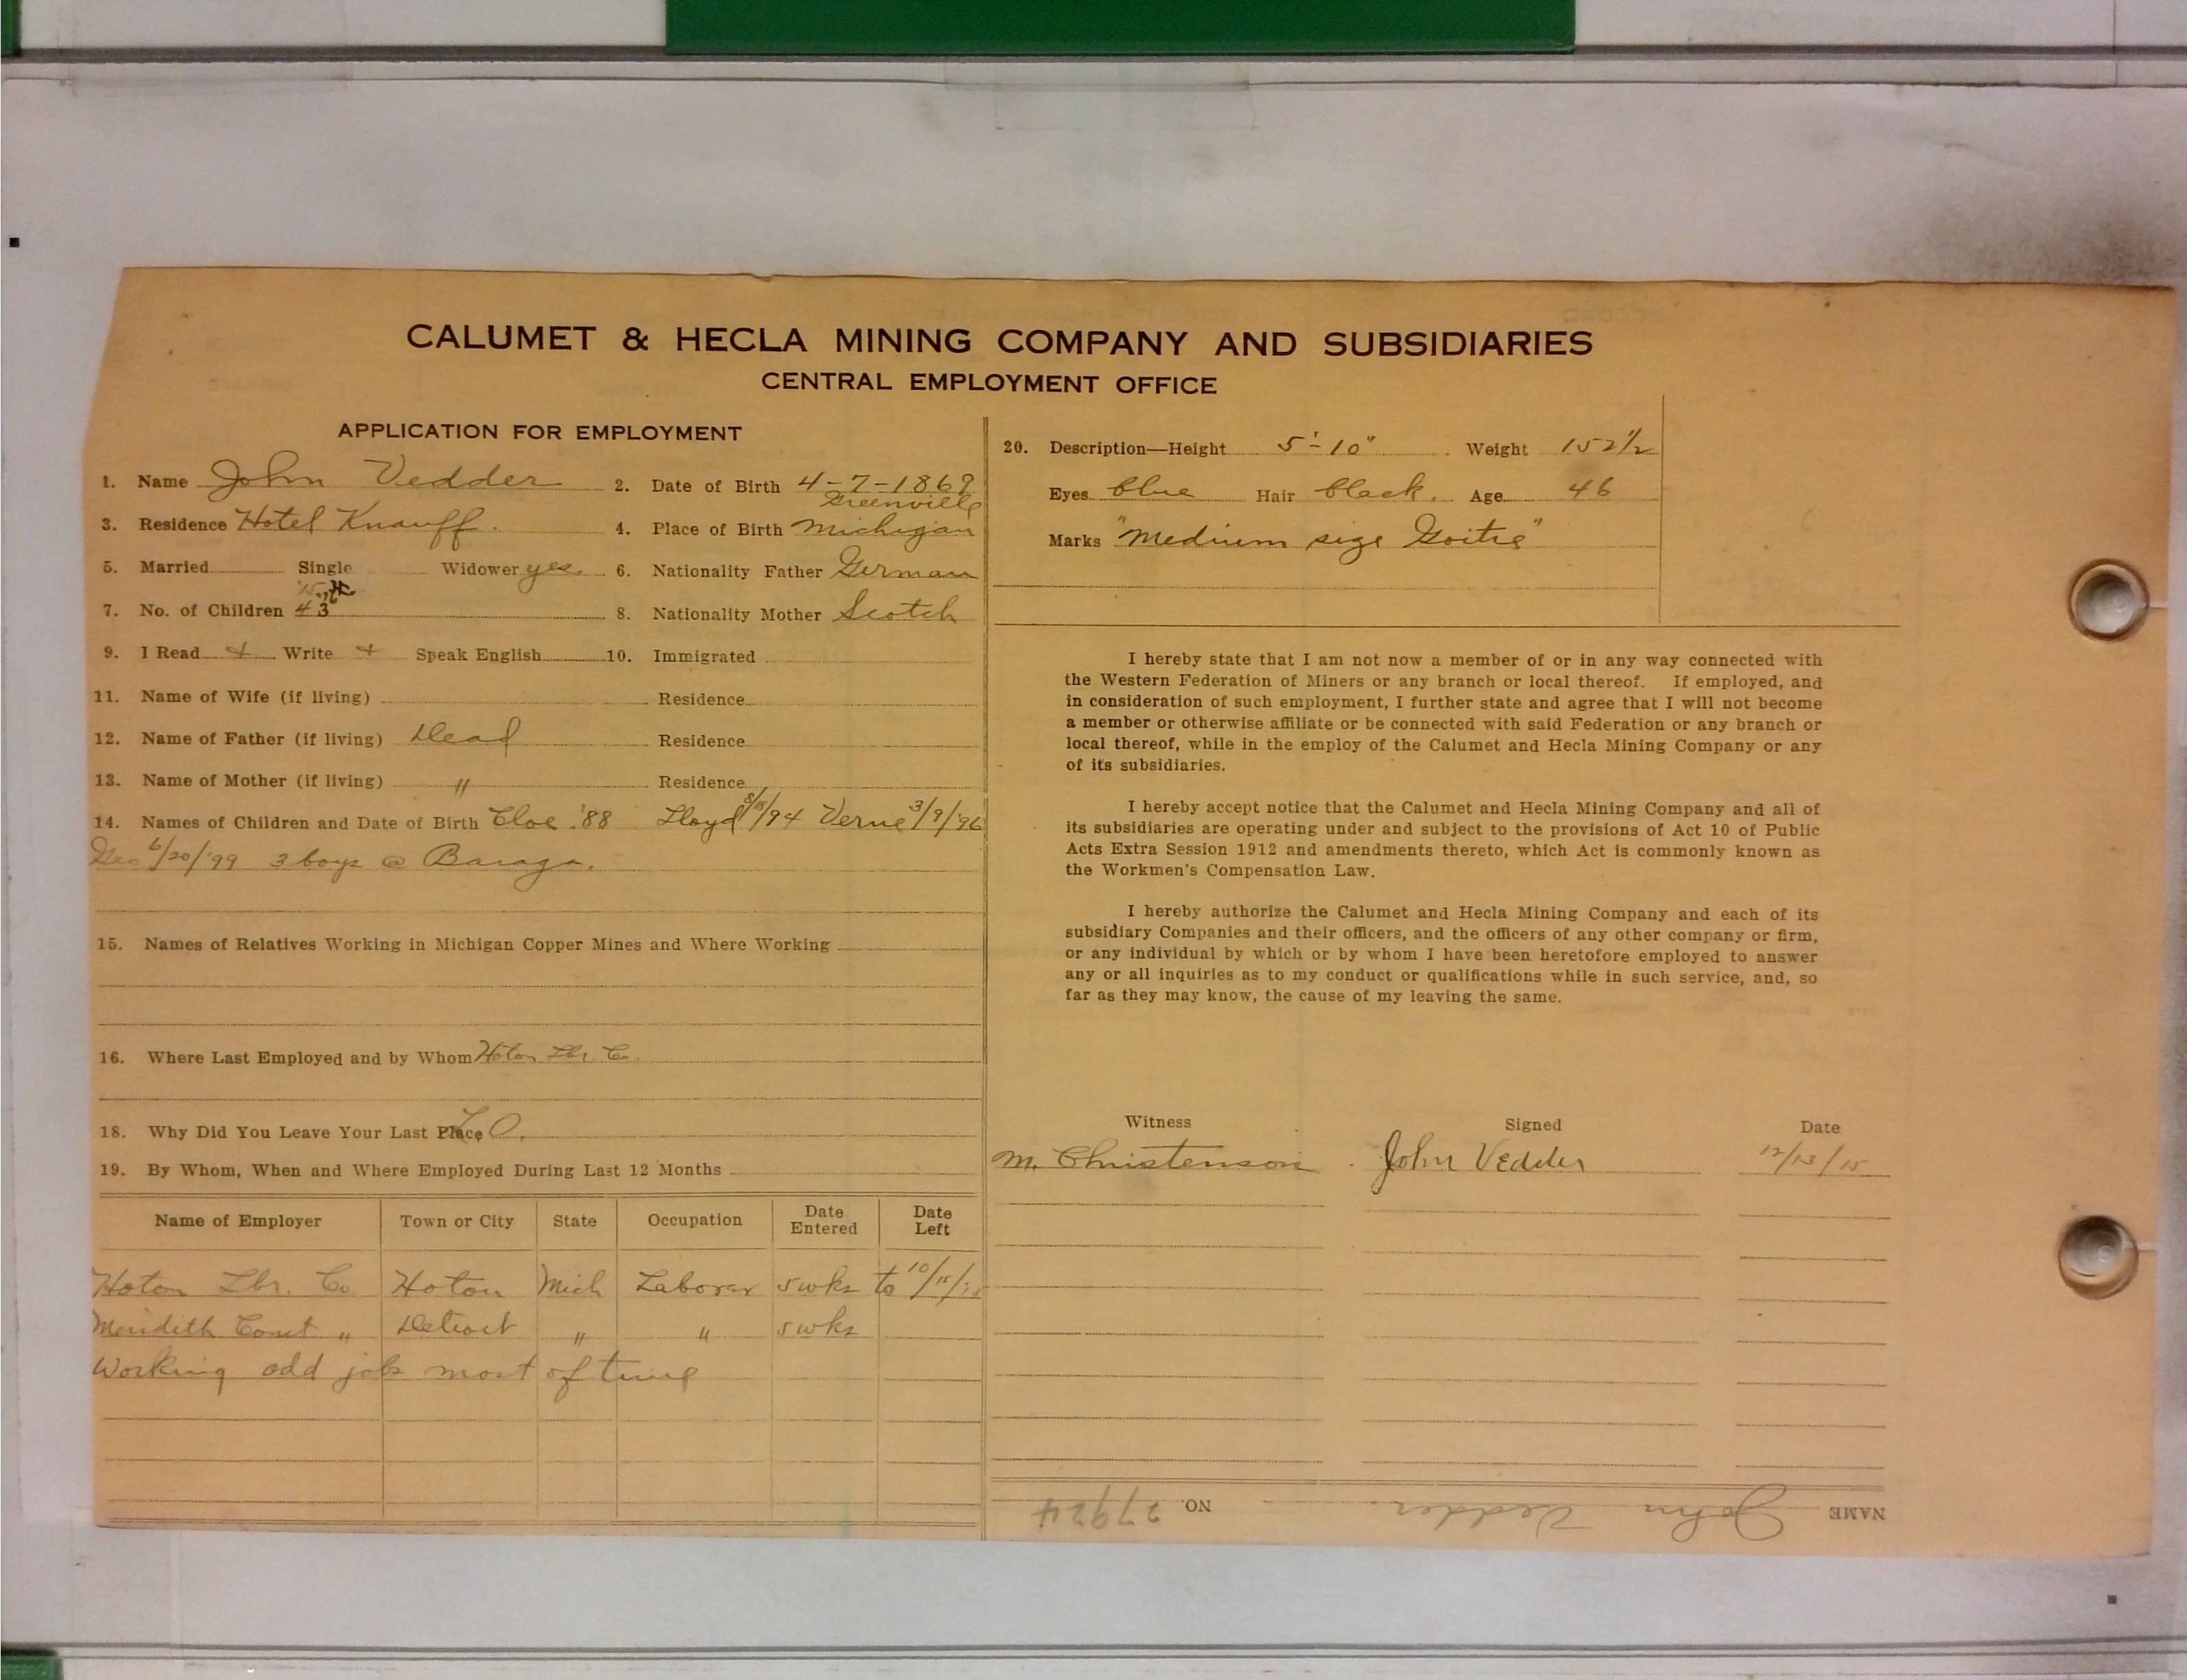 CALUMET & HECLA MINING COMPANY AND SUBSIDIARIES
CENTRAL EMPLOYMENT OFFICE
APPLICATION FOR EMPLOYMENT
1. Name John Vedder 2. Date of Birth 4-7-1869
3. Residence Hotel Knauff. 4. Place of Birth Greenville Michigan
5. Married Single Widower yes. 6. Nationality Father German
7. No. of Children 4 3 8. Nationality Mother Scotch
9. I Read + Write + Speak English 10. Immigrated
11. Name of Wife (if living) Residence
12. Name of Father (if living) Dead Residence
13. Name of Mother (if living) " Residence
14. Names of Children and Date of Birth Cloe '88 Lloyd 8/15/94 Verne 3/9/96
Geo 6/20/'99 3 boys @ Baraga.
15. Names of Relatives Working in Michigan Copper Mines and Where Working
16. Where Last Employed and by Whom Hoton Lbr. Co.
18. Why Did You Leave Your Last Place L O.
19. By Whom, When and Where Employed During Last 12 Months
Name of Employer Town or City State Occupation Date Entered Date Left
Hoton Lbr. Co Hoton Mich Laborer 5 wks to 10/15/15
Meridith Const " Detroit " " 5 wks
Working odd jobs most of time
20. Description—Height 5'-10" Weight 152 1/2
Eyes blue Hair black. Age 46
Marks "Medium size Goitre"
I hereby state that I am not now a member of or in any way connected with
the Western Federation of Miners or any branch or local thereof. If employed, and
in consideration of such employment, I further state and agree that I will not become
a member or otherwise affiliate or be connected with said Federation or any branch or
local thereof, while in the employ of the Calumet and Hecla Mining Company or any
of its subsidiaries.
I hereby accept notice that the Calumet and Hecla Mining Company and all of
its subsidiaries are operating under and subject to the provisions of Act 10 of Public
Acts Extra Session 1912 and amendments thereto, which Act is commonly known as
the Workmen's Compensation Law.
I hereby authorize the Calumet and Hecla Mining Company and each of its
subsidiary Companies and their officers, and the officers of any other company or firm,
or any individual by which or by whom I have been heretofore employed to answer
any or all inquiries as to my conduct or qualifications while in such service, and, so
far as they may know, the cause of my leaving the same.
Witness Signed Date
M. Christenson John Vedder 12/13/15
NAME John Vedder. NO. 27924